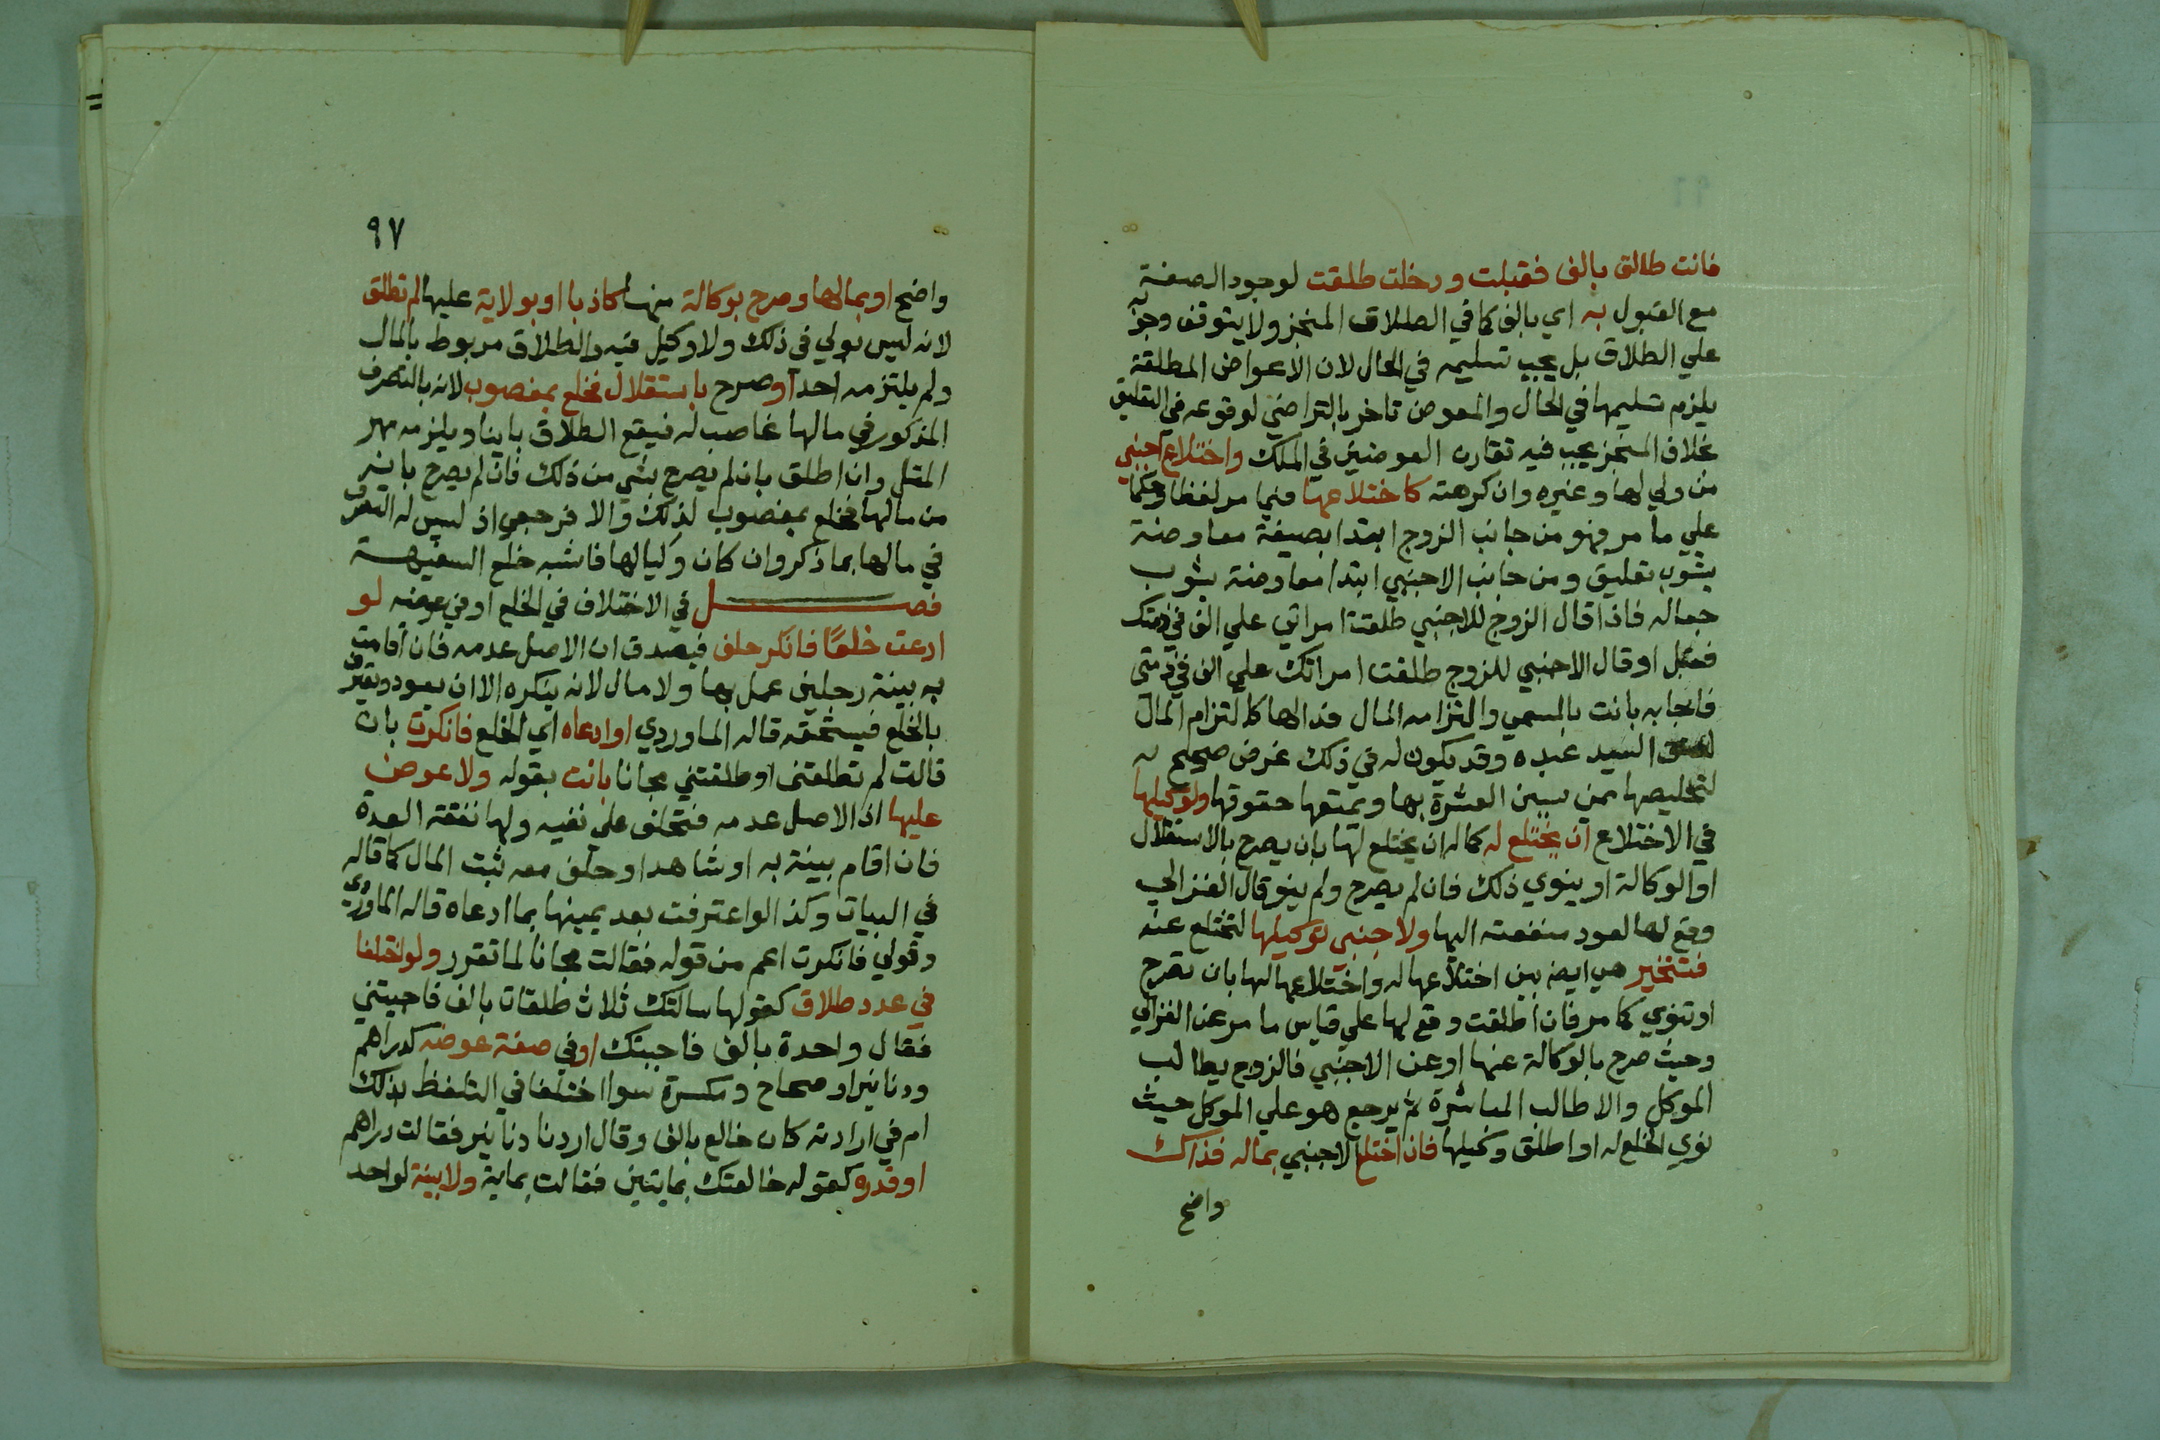 فانت طالق بالف فقبلت ودخلت طلقت لوجود الصفة
مع القبول به اي بالف كما في الطلاق المنجز ولا يتوقف وجوبه
علي الطلاق بل يجب تسليمه في الحال لان الاعواض المطلقة
يلزم تسليمها في الحال والمعوض تاخر بالتراضي لوقوعه في التعليق
بخلاف المنجز يجب فيه تقارن العوضين في الملك واختلاع اجنبي
من ولي لها وغيره وان كرهته كاختلاعها فيما مر لفظا وحكما
علي ما مر فهو من جانب الزوج ابتدا بصيغة معاوضة
بشوب تعليق ومن جانب الاجنبي ابتدا معاوضة بشوب
جعالة فاذا قال الزوج للاجنبي طلقت امراتي علي الف في ذمتك
فقبل او قال الاجنبي للزوج طلقت امراتك علي الف في ذمتي
فاجابه بانت بالمسمي والتزامه المال فدا لها كالتزام المال
لعتق السيد عبده وقد يكون له في ذلك غرض صحيح له
لتخليصها ممن يسيئ العشرة بها ويمنعها حقوقها ولوكيلها
في الاختلاع ان يختلع له كما له ان يختلع لها بان يصرح بالاستقلال
او الوكالة او ينوي ذلك فان لم يصرح ولم ينو قال الغزالي
وقع لها لعود منفعته اليها ولاجنبي توكيلها لتختلع عنه
فتتخير هي ايضا بين اختلاعها له واختلاعها لها بان تصرح
او تنوي كما مر فان اطلقت وقع لها علي قياس ما مر عن الغزالي
وحيث صرح بالوكالة عنها او عن الاجنبي فالزوج يطالب
الموكل والا طالب المباشرة ثم يرجع هو علي الموكل حيث
نوي الخلع له او اطلق وكيلها فان اختلع الاجنبي بماله فذاك
واضح
٩٧
واضح او بمالها وصرح بوكالة منها كاذبا او بولاية عليها لم تطلق
لانه ليس بولي في ذلك ولا وكيل فيه والطلاق مربوط بالمال
ولم يلتزمه احد او صرح باستقلال فخلع بمغصوب لانه بالتصرف
المذكور في مالها غاصب له فيقع الطلاق باينا ويلزمه مهر
المثل وان اطلق بان لم يصرح بشي من ذلك فان لم يصرح بانه
من مالها فخلع بمغصوب لذلك والا فرجعي اذ ليس له التصرف
في مالها بما ذكر وان كان وليا لها فاشبه خلع السفيهة
فصل في الاختلاف في الخلع او في عوضه لو
ادعت خلعًا فانكر حلف فيصدق ان الاصل عدمه فان اقامت
به بينة رجلين عمل بها ولا مال لانه ينكره الا ان يعود ويعترف
بالخلع فيستحقه قاله الماوردي او ادعاه اي الخلع فانكرت بان
قالت لم تطلقني او طلقتني مجانا بانت بقوله ولا عوض
عليها اذ الاصل عدمه فتحلف علي نفيه ولها نفقة العدة
فان اقام بينة به او شاهدا وحلف معه ثبت المال كما قاله
في البيان وكذا لو اعترفت بعد يمينها بما ادعاه قاله الماوردي
وقولي فانكرت اعم من قوله فقالت مجانا لما تقرر ولو اختلفا
في عدد طلاق كقولها سالتك ثلاث طلقات بالف فاجبتني
فقال واحدة بالف فاجبتك او في صفة عوضه كدراهم
ودنانير او صحاح ومكسرة سوا اختلفا في التلفظ بذلك
ام في ارادته كان خالع بالف وقال اردنا دنانير فقالت دراهم
او قدره كقوله خالعتك بمايتين فقالت بماية ولا بينة لواحد